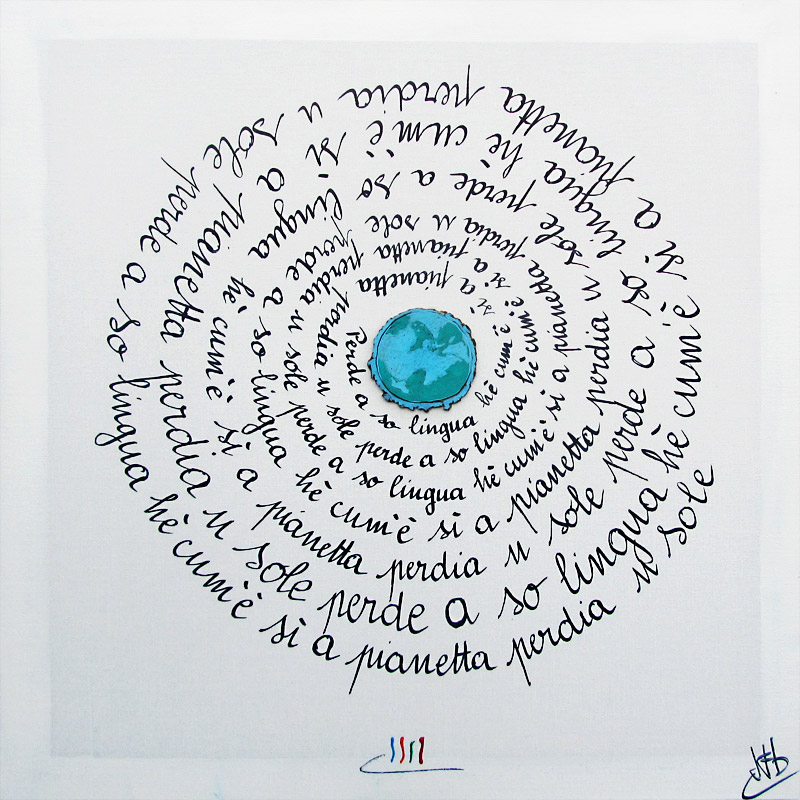 Perde a so lingua hè cum'è sì a pianetta perdia u sole
perde a so lingua hè cum'è sì a pianetta perdia u sole
perde a so lingua hè cum'è sì a pianetta perdia u sole
perde a so lingua hè cum'è sì a pianetta perdia u sole
perde a so lingua hè cum'è sì a pianetta perdia u sole
perde a so lingua hè cum'è sì a pianetta perdia u sole
perde a so lingua hè cum'è sì a pianetta perdia u sole
perde a so lingua hè cum'è sì a pianetta perdia u sole